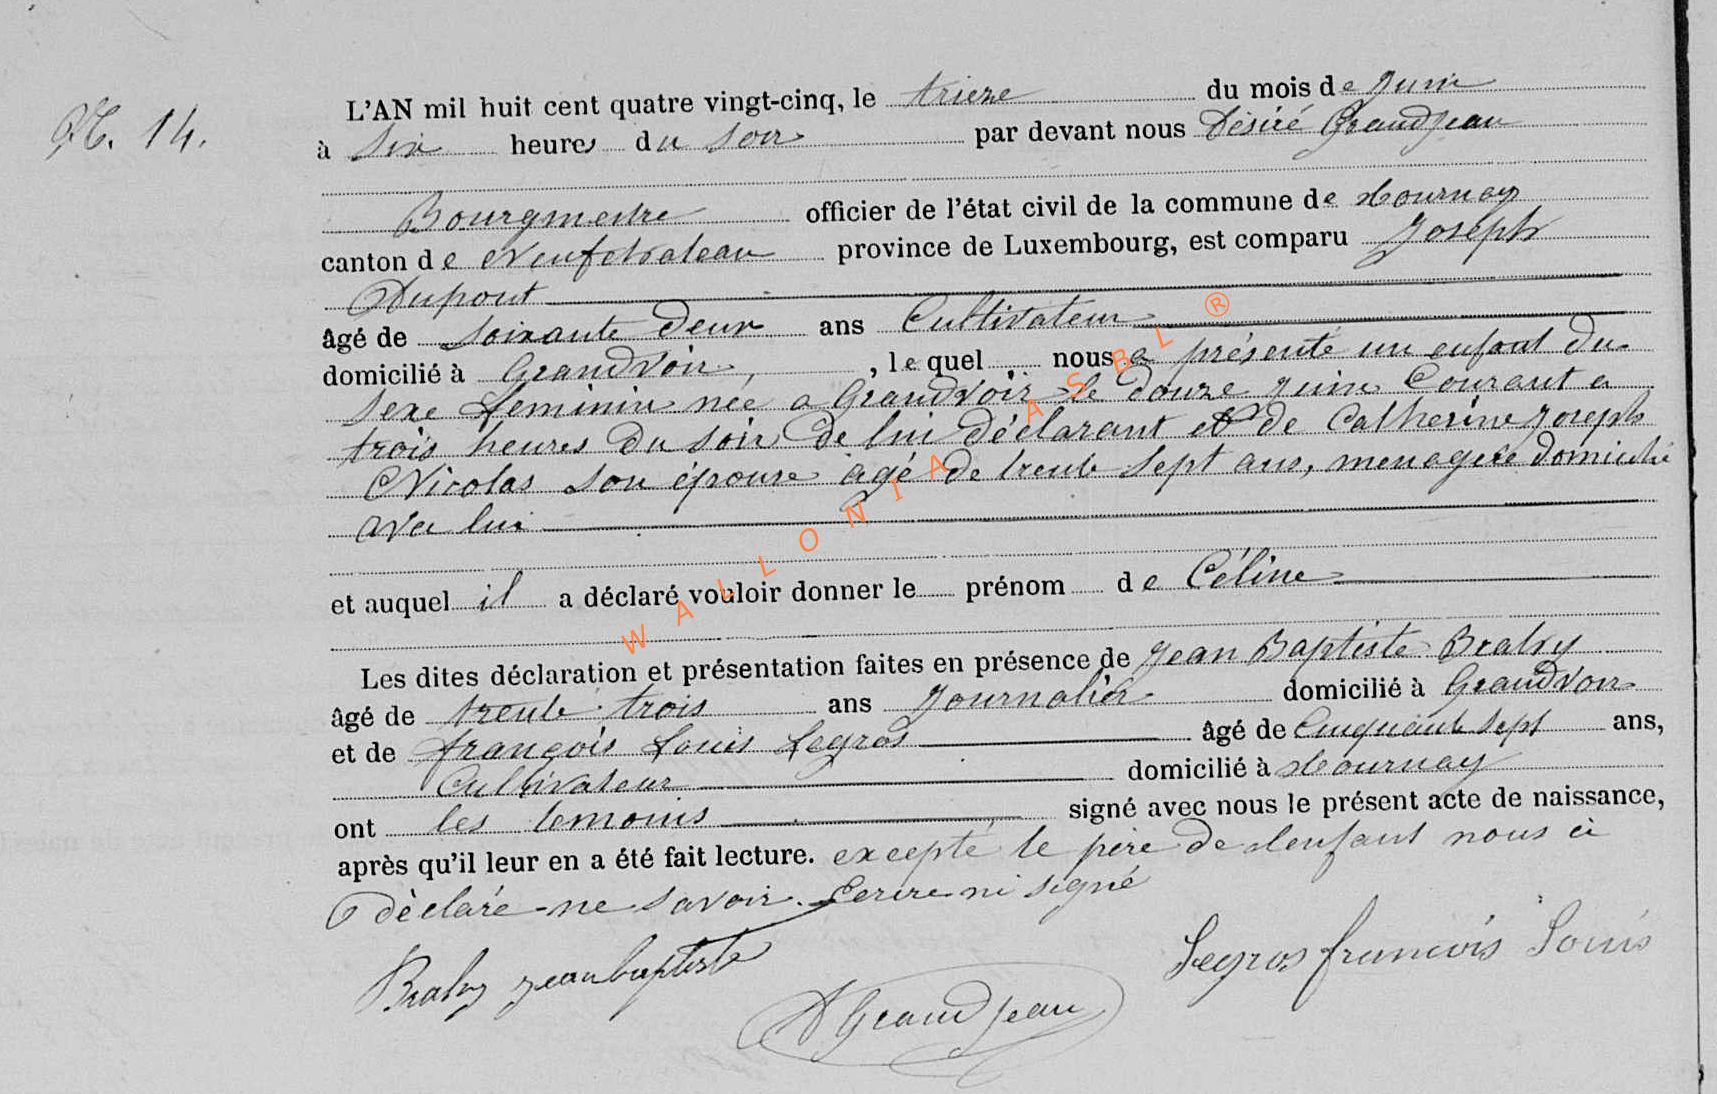 N. 14.
L'AN mil huit cent quatre vingt-cinq, le trieze du mois de Juin
à Six heures du Soir par devant nous Désiré Grandjean
Bourgmestre officier de l'état civil de la commune de Tournay
canton de Neufchateau province de Luxembourg, est comparu Joseph
Dupont
âgé de Soixante deux ans Cultivateur
domicilié à Grandvoir, , lequel nous a présenté un enfant du
sexe feminin née a Grandvoir le douze juin Courant a
trois heures du soir de lui déclarant et de Catherine Joseph
Nicolas son épouse agé de trente sept ans, menagere domicilié
avec lui
et auquel il a déclaré vouloir donner le prénom de Céline
Les dites déclaration et présentation faites en présence de Jean Baptiste Bralry
âgé de trente trois ans Journalier domicilié à Grandvoir
et de françois Louis Legros âgé de Cinquante Sept ans,
Cultivateur domicilié à Tournay
ont les temoins signé avec nous le présent acte de naissance,
après qu'il leur en a été fait lecture. excepté le père de lenfant nous à
déclaré ne savoir Ecrire ni signé
jean baptiste
Legros francois Louis
D Grandjean
WALLONIA ASBL ®